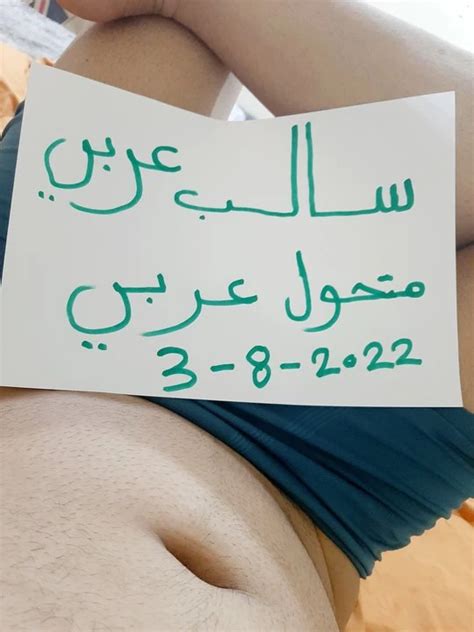 سالب عربي
متحول عربي
3-8-2022